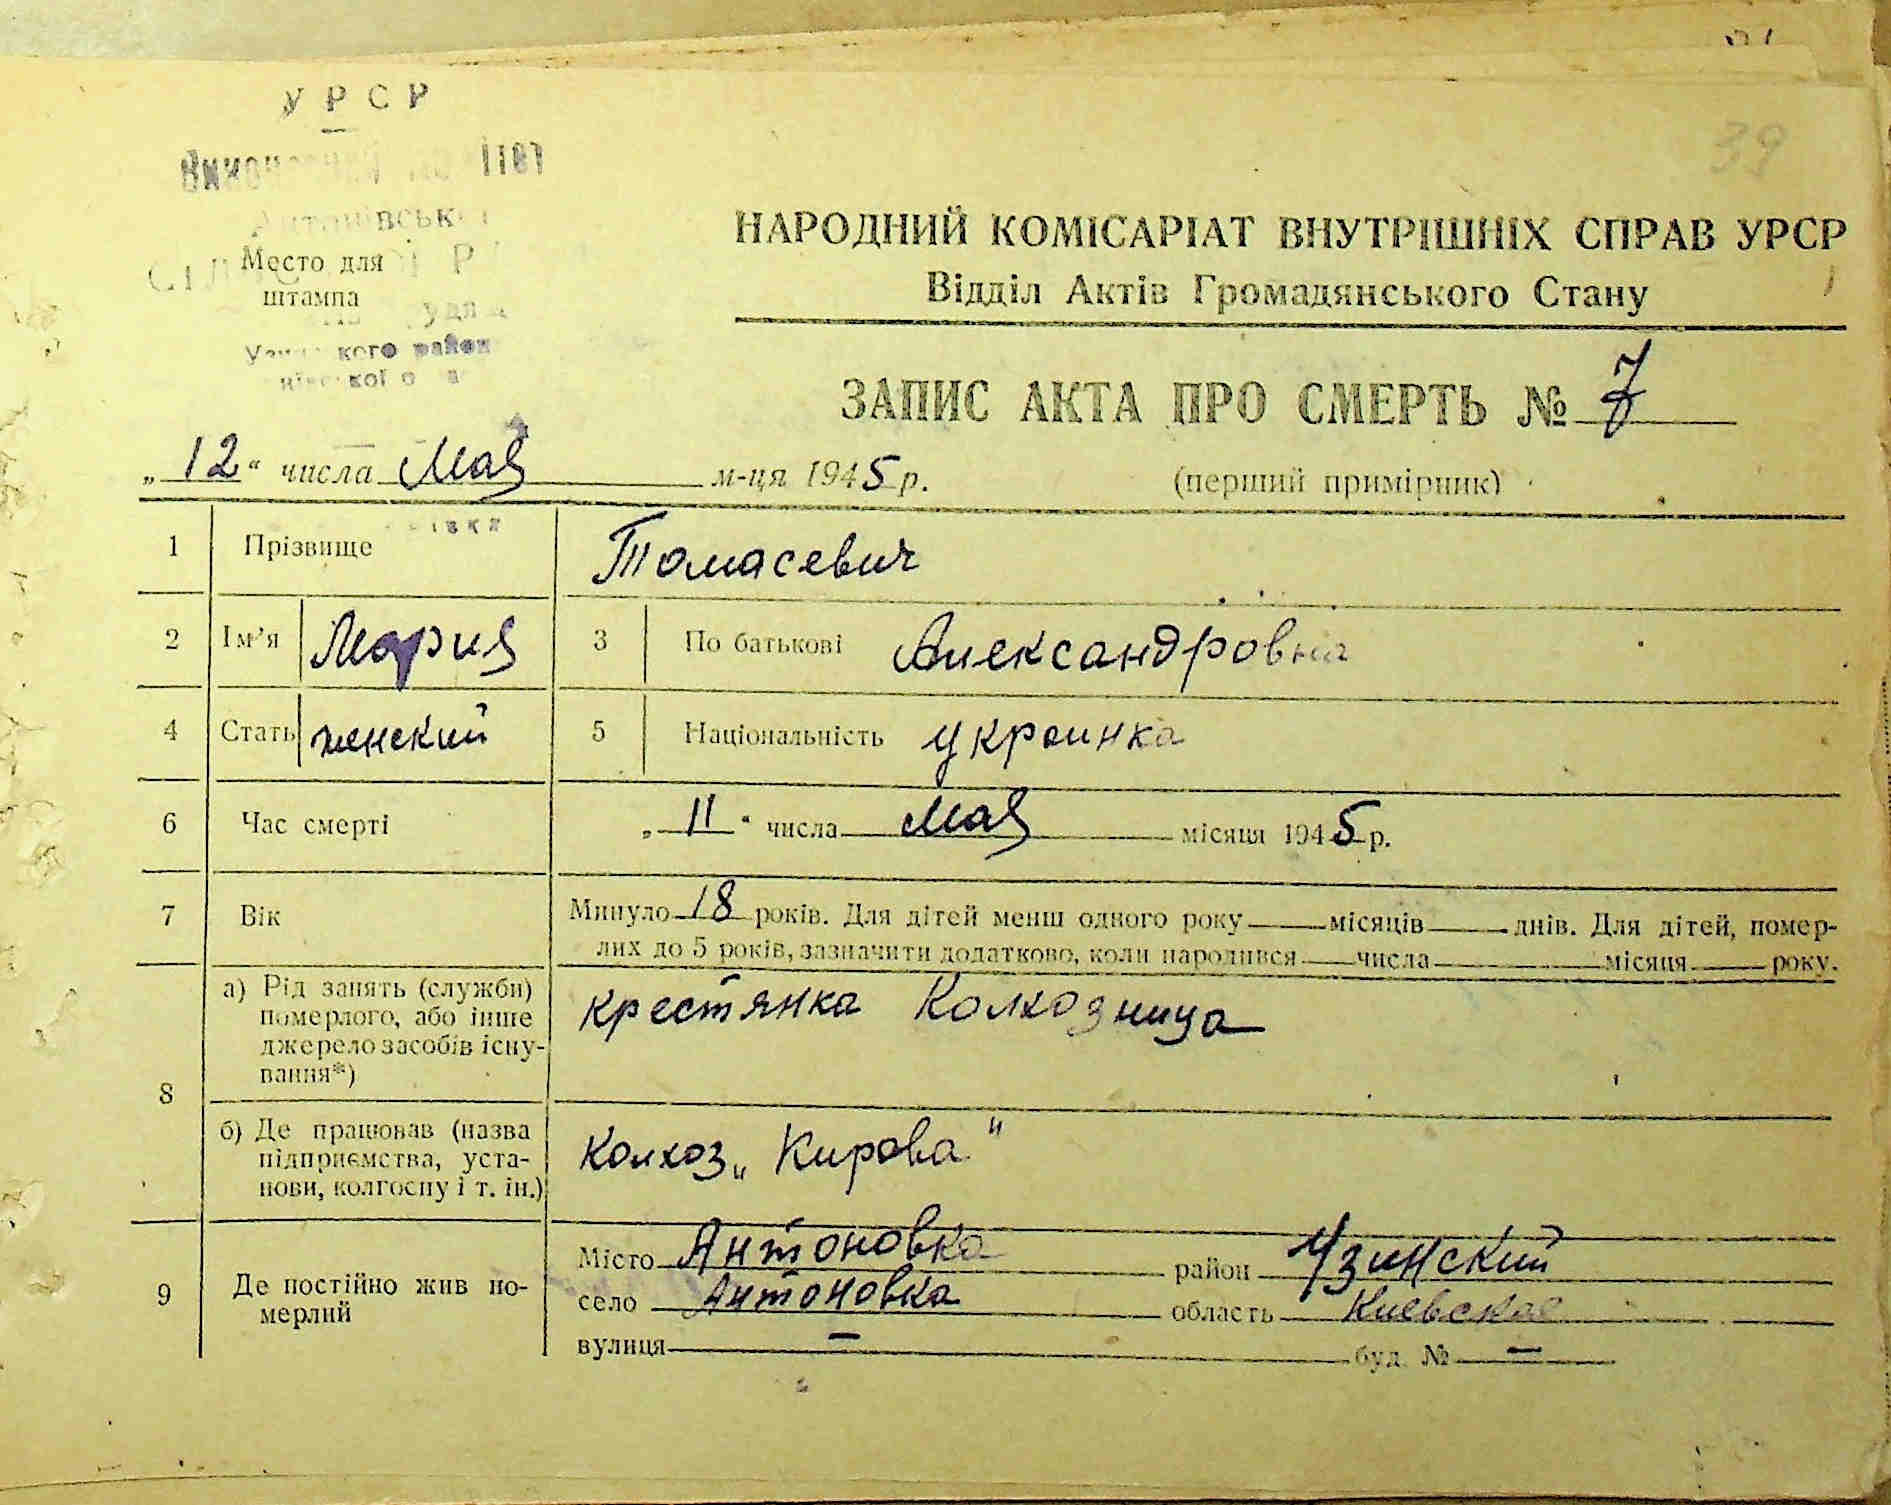 УРСР
39
Место для
штампа
НАРОДНИЙ КОМІСАРІАТ ВНУТРІШНІХ СПРАВ УРСР
Відділ Актів Громадянського Стану
ЗАПИС АКТА ПРО СМЕРТЬ № 7
„12“ числа Мая м-ця 1945 р. (перший примірник)
1 Прізвище Томасевич
2 Ім’я Мария 3 По батькові Александровна
4 Стать женский 5 Національність украинка
6 Час смерті „11“ числа Мая місяця 1945 р.
7 Вік Минуло 18 років. Для дітей менш одного року місяців днів. Для дітей, помер-
лих до 5 років, зазначити додатково, коли народився числа місяця року.
8 а) Рід занять (служби) крестянка Колхозница
померлого, або інше
джерело засобів існу-
вання*)
б) Де працював (назва колхоз „Кирова"
підприємства, уста-
нови, колгоспу і т. ін.)
9 Де постійно жив по-
мерлий
Місто Антоновка район Узинский
село Антоновка область Киевская
вулиця — буд. № —